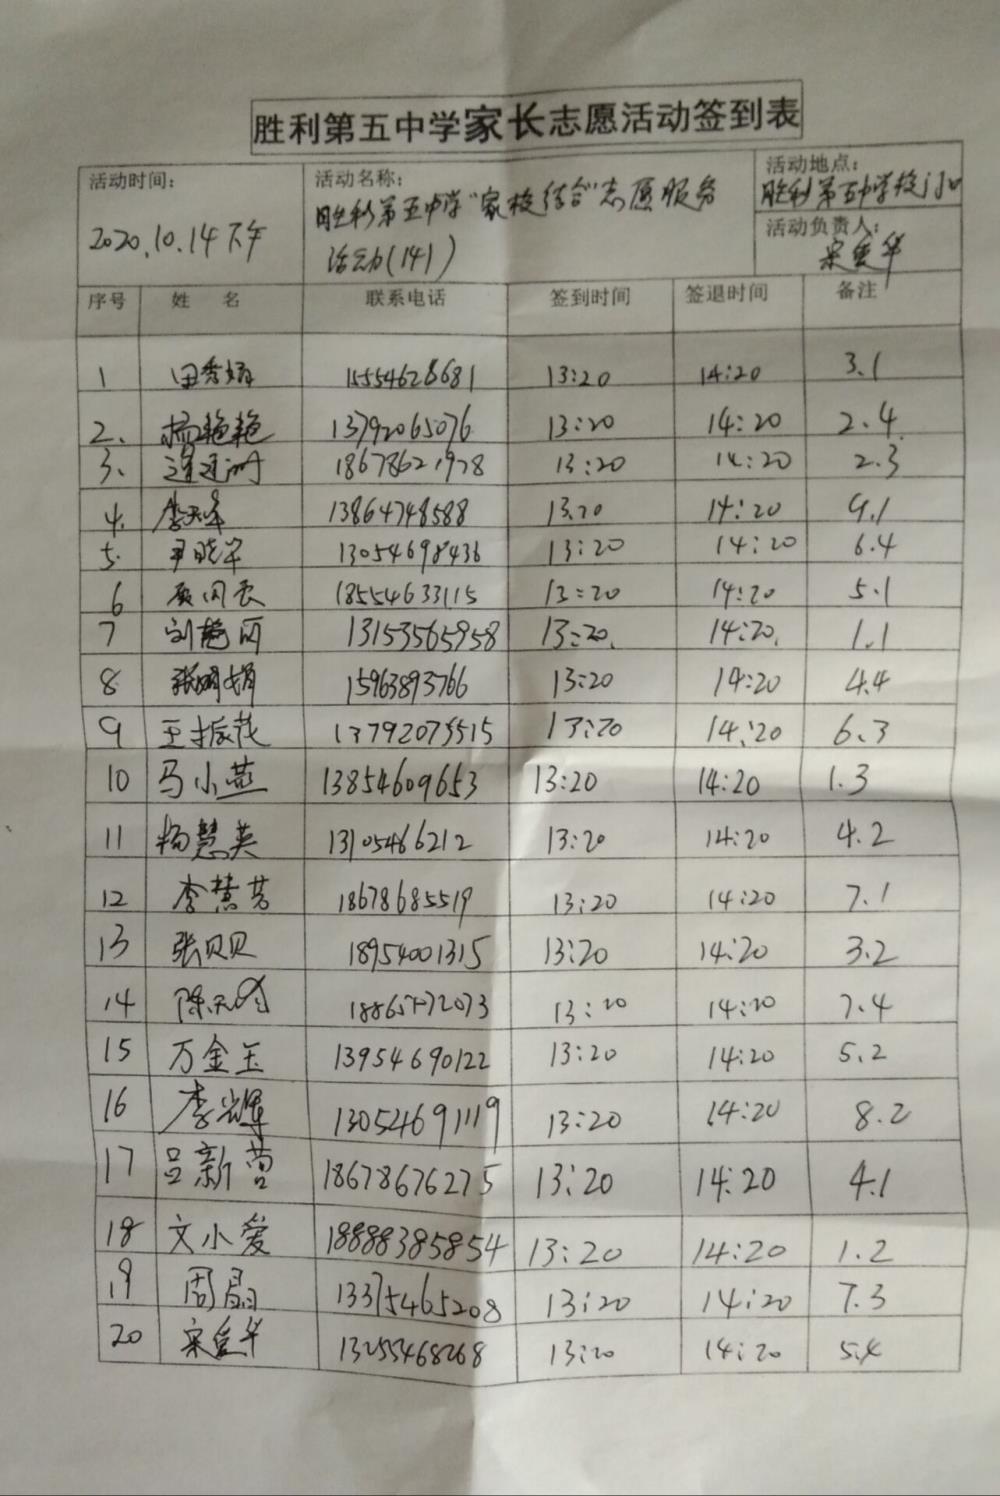 胜利第五中学家长志愿活动签到表
活动时间： 2020.10.14下午
活动名称： 胜利第五中学“家校结合”志愿服务
活动(141)
活动地点： 胜利第五中学校门口
活动负责人： 宋爱华
序号 姓 名 联系电话 签到时间 签退时间 备注
1 田秀娟 15554628681 13:20 14:20 3.1
2. 杨艳艳 13792065076 13:20 14:20 2.4
3. 13:20 14:20 2.3
4. 李天峰 13864748588 13:20 14:20 9.1
5. 尹晓华 13054698436 13:20 14:20 6.4
6 18554633115 13:20 14:20 5.1
7 刘艳丽 13153565958 13:20. 14:20. 1.1
8 张娟娟 15963893766 13:20 14:20 4.4
9 王振花 13792075515 13:20 14:20 6.3
10 马小燕 13854609653 13:20 14:20 1.3
11 杨慧英 13105466212 13:20 14:20 4.2
12 李慧芳 18678685519 13:20 14:20 7.1
13 张贝贝 18954001315 13:20 14:20 3.2
14 13:20 14:20 7.4
15 万金玉 13954690122 13:20 14:20 5.2
16 李光辉 13054691119 13:20 14:20 8.2
17 吕新营 18678676275 13:20 14:20 4.1
18 文小爱 18888385854 13:20 14:20 1.2
19 周晶 13375465208 13:20 14:20 7.3
20 宋爱华 13255468268 13:20 14:20 5.4